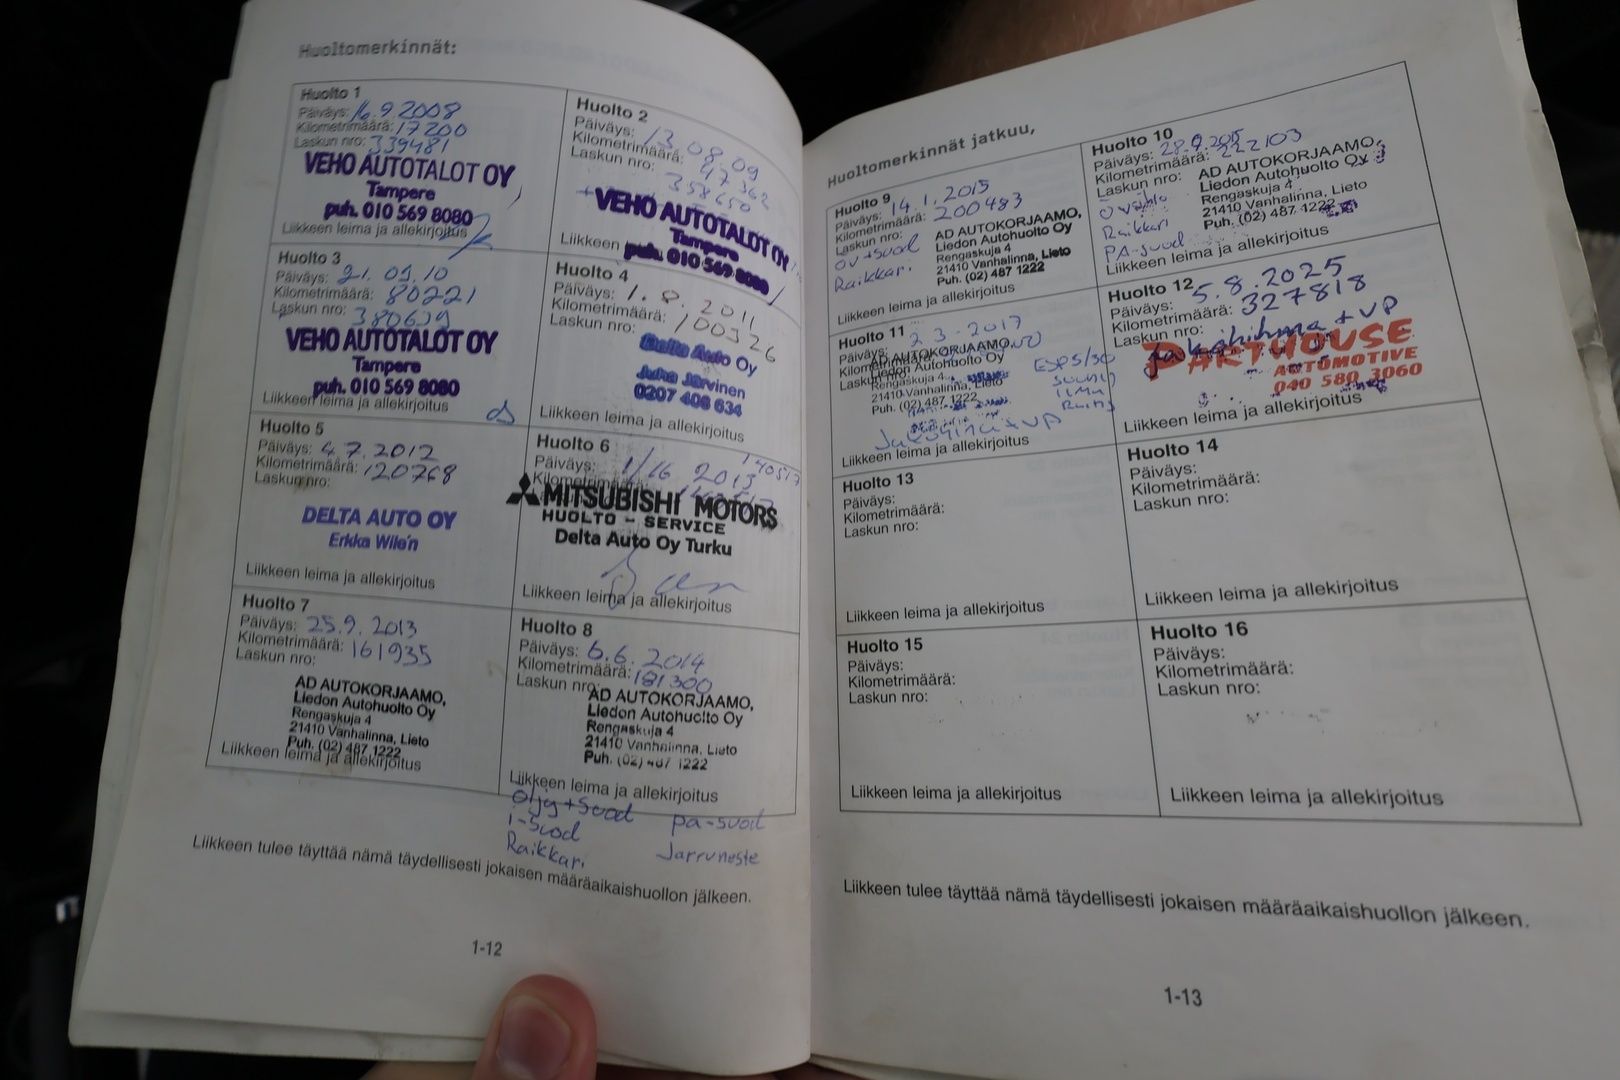 Huoltomerkinnät:
Huolto 1
Päiväys: 16.9.2008
Kilometrimäärä: 17200
Laskun nro: 339481
VEHO AUTOTALOT OY
Tampere
puh. 010 569 8080
Liikkeen leima ja allekirjoitus
Huolto 2
Päiväys: 13.08.09
Kilometrimäärä: 47362
Laskun nro: 358650
VEHO AUTOTALOT OY
Tampere
puh. 010 569 8080
Liikkeen
Huolto 3
Päiväys: 21.05.10
Kilometrimäärä: 80221
Laskun nro: 380639
VEHO AUTOTALOT OY
Tampere
puh. 010 569 8080
Liikkeen leima ja allekirjoitus
Huolto 4
Päiväys: 1.8.2011
Kilometrimäärä: 100326
Laskun nro:
Delta Auto Oy
Juha Järvinen
0207 408 634
Liikkeen leima ja allekirjoitus
Huolto 5
Päiväys: 4.7.2012
Kilometrimäärä: 120768
Laskun nro:
DELTA AUTO OY
Erkka Wilen
Liikkeen leima ja allekirjoitus
Huolto 6
Päiväys: 1/16 2013 140517
Kilometrimäärä:
MITSUBISHI MOTORS
HUOLTO - SERVICE
Delta Auto Oy Turku
Liikkeen leima ja allekirjoitus
Huolto 7
Päiväys: 25.9.2013
Kilometrimäärä: 161935
Laskun nro:
AD AUTOKORJAAMO,
Liedon Autohuolto Oy
Rengaskuja 4
21410 Vanhalinna, Lieto
Puh. (02) 487 1222
Liikkeen leima ja allekirjoitus
Huolto 8
Päiväys: 6.6.2014
Kilometrimäärä: 181300
Laskun nro:
AD AUTOKORJAAMO,
Liedon Autohuolto Oy
Rengaskuja 4
21410 Vanhalinna, Lieto
Puh. (02) 487 1222
Liikkeen leima ja allekirjoitus
Öljy+Suod pa-suod
i-Suod Jarruneste
Raikkari
Liikkeen tulee täyttää nämä täydellisesti jokaisen määräaikaishuollon jälkeen.
1-12
Huoltomerkinnät jatkuu,
Huolto 9
Päiväys: 14.1.2015
Kilometrimäärä: 200483
Laskun nro:
AD AUTOKORJAAMO,
Liedon Autohuolto Oy
Rengaskuja 4
21410 Vanhalinna, Lieto
Puh. (02) 487 1222
Öv+suod
Raikkari
Liikkeen leima ja allekirjoitus
Huolto 10
Päiväys: 28.9.2015
Kilometrimäärä: 222103
Laskun nro:
AD AUTOKORJAAMO,
Liedon Autohuolto Oy
Rengaskuja 4
21410 Vanhalinna, Lieto
Puh. (02) 487 1222
Raikkari
PA-suod
Liikkeen leima ja allekirjoitus
Huolto 11
Päiväys: 2.3-2017
Kilometrimäärä:
Laskun nro:
AD AUTOKORJAAMO,
Liedon Autohuolto Oy
Rengaskuja 4
21410 Vanhalinna, Lieto
Puh. (02) 487 1222
Jakohihna+VP
Liikkeen leima ja allekirjoitus
Huolto 12
Päiväys: 5.8.2025
Kilometrimäärä: 327818
Laskun nro:
jakohihna + VP
PARTHOUSE
AUTOMOTIVE
040 580 3060
Liikkeen leima ja allekirjoitus
Huolto 13
Päiväys:
Kilometrimäärä:
Laskun nro:
Liikkeen leima ja allekirjoitus
Huolto 14
Päiväys:
Kilometrimäärä:
Laskun nro:
Liikkeen leima ja allekirjoitus
Huolto 15
Päiväys:
Kilometrimäärä:
Laskun nro:
Liikkeen leima ja allekirjoitus
Huolto 16
Päiväys:
Kilometrimäärä:
Laskun nro:
Liikkeen leima ja allekirjoitus
Liikkeen tulee täyttää nämä täydellisesti jokaisen määräaikaishuollon jälkeen.
1-13